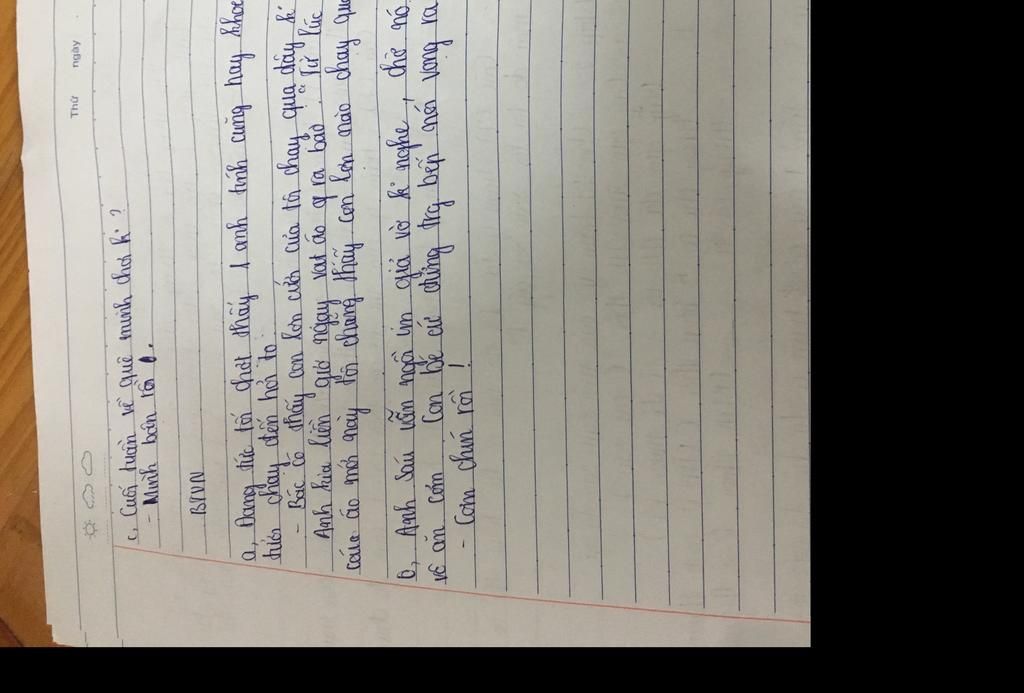 Thứ ngày
c, Cuối tuần về quê mình chơi k ?
- Mình bận rồi
BTVN
a, Đang tức tối chợt thấy 1 anh tính cũng hay khoe
tiến chạy đến hỏi to
- Bác có thấy con lợn cưới của tôi chạy qua đây k
Anh kia liền giơ ngay vạt áo ra bảo. Từ lúc
áo mới này tôi chẳng thấy con lợn nào chạy qua
b, Anh Sáu vẫn ngồi im giả vờ k nghe, chờ nó
về ăn cơm Con bé cứ đứng trg bếp nói vọng ra
- Cơm chín rồi !